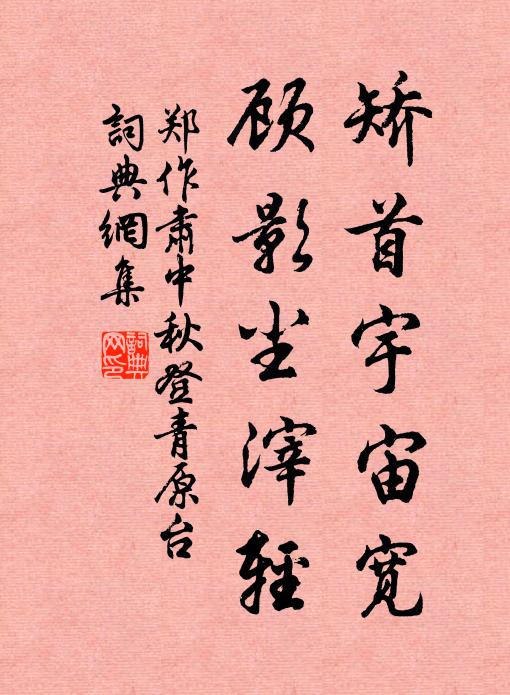 矫首宇宙宽
顾影尘滓輕
郑作肅中秋登青原台
詞典網集
詞典网印